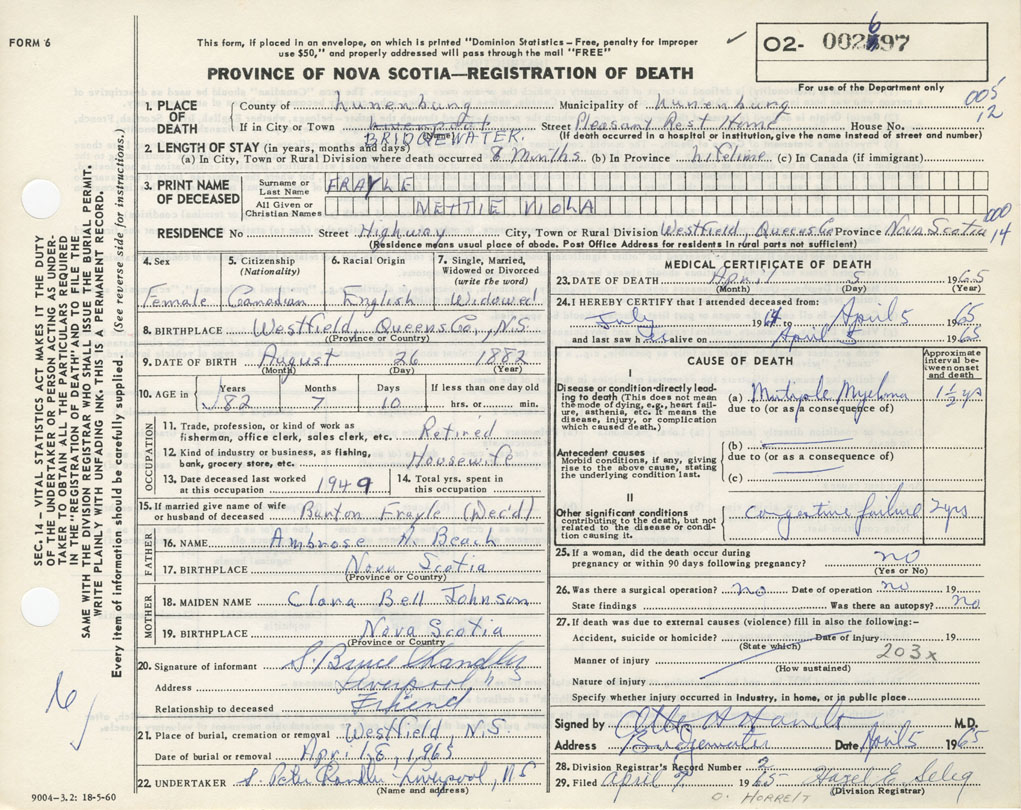 FORM 6
This form, if placed in an envelope, on which is printed "Dominion Statistics – Free, penalty for improper
use $50," and properly addressed will pass through the mail "FREE"
PROVINCE OF NOVA SCOTIA—REGISTRATION OF DEATH
02- 002697
For use of the Department only
005
12
1. PLACE OF DEATH { County of Lunenburg Municipality of Lunenburg
If in City or Town BRIDGEWATER Street Pleasant Rest Home House No.
(If death occurred in a hospital or institution, give the name instead of street and number)
2. LENGTH OF STAY (in years, months and days)
(a) In City, Town or Rural Division where death occurred 8 Months (b) In Province Lifetime (c) In Canada (if immigrant)
3. PRINT NAME OF DECEASED Surname or Last Name FRAYLE
All Given or Christian Names NETTIE VIOLA
RESIDENCE No Street Highway City, Town or Rural Division Westfield, Queens Co Province Nova Scotia
000
14
(Residence means usual place of abode. Post Office Address for residents in rural parts not sufficient)
4. Sex Female
5. Citizenship (Nationality) Canadian
6. Racial Origin English
7. Single, Married, Widowed or Divorced (write the word) Widowed
8. BIRTHPLACE Westfield, Queens Co., N.S.
(Province or Country)
9. DATE OF BIRTH August 26 1882
(Month) (Day) (Year)
10. AGE in Years 82 Months 7 Days 10 If less than one day old hrs. or min.
OCCUPATION
11. Trade, profession, or kind of work as fisherman, office clerk, sales clerk, etc. Retired
12. Kind of industry or business, as fishing, bank, grocery store, etc. Housewife
13. Date deceased last worked at this occupation 1949
14. Total yrs. spent in this occupation
15. If married give name of wife or husband of deceased Burton Frayle (Dec'd)
FATHER
16. NAME Ambrose H. Beach
17. BIRTHPLACE Nova Scotia
(Province or Country)
MOTHER
18. MAIDEN NAME Clara Bell Johnson
19. BIRTHPLACE Nova Scotia
(Province or Country)
20. Signature of informant S. Bruce Chandler
Address Liverpool
Relationship to deceased Friend
21. Place of burial, cremation or removal Westfield, N.S.
Date of burial or removal April 8, 1965
22. UNDERTAKER Liverpool, NS
(Name and address)
9004–3.2: 18-5-60
MEDICAL CERTIFICATE OF DEATH
23. DATE OF DEATH April 5 1965
(Month) (Day) (Year)
24. I HEREBY CERTIFY that I attended deceased from:
July 1964 to April 5 1965
and last saw h alive on April 5 1965
CAUSE OF DEATH
Approximate interval between onset and death
I
Disease or condition directly leading to death (This does not mean the mode of dying, e.g., heart failure, asthenia, etc. It means the disease, injury, or complication which caused death.)
(a) Multiple Myeloma 1½ yrs
due to (or as a consequence of)
Antecedent causes
Morbid conditions, if any, giving rise to the above cause, stating the underlying condition last.
(b)
due to (or as a consequence of)
(c)
II
Other significant conditions
contributing to the death, but not related to the disease or condition causing it.
congestive failure 2 yrs
25. If a woman, did the death occur during pregnancy or within 90 days following pregnancy? no
(Yes or No)
26. Was there a surgical operation? no Date of operation no 19
State findings Was there an autopsy? no
27. If death was due to external causes (violence) fill in also the following:-
Accident, suicide or homicide? Date of injury 19
(State which)
203x
Manner of injury
(How sustained)
Nature of injury
Specify whether injury occurred in industry, in home, or in public place
Signed by M.D.
Address Bridgewater Date April 5 1965
28. Division Registrar's Record Number 2
29. Filed April 1965 Hazel E. Selig
(Division Registrar)
SEC. 14 – VITAL STATISTICS ACT MAKES IT THE DUTY
OF THE UNDERTAKER OR PERSON ACTING AS UNDER-
TAKER TO OBTAIN ALL THE PARTICULARS REQUIRED
IN THE "REGISTRATION OF DEATH" AND TO FILE THE
SAME WITH THE DIVISION REGISTRAR WHO SHALL ISSUE THE BURIAL PERMIT.
WRITE PLAINLY WITH UNFADING INK. THIS IS A PERMANENT RECORD.
Every item of information should be carefully supplied. (See reverse side for instructions.)